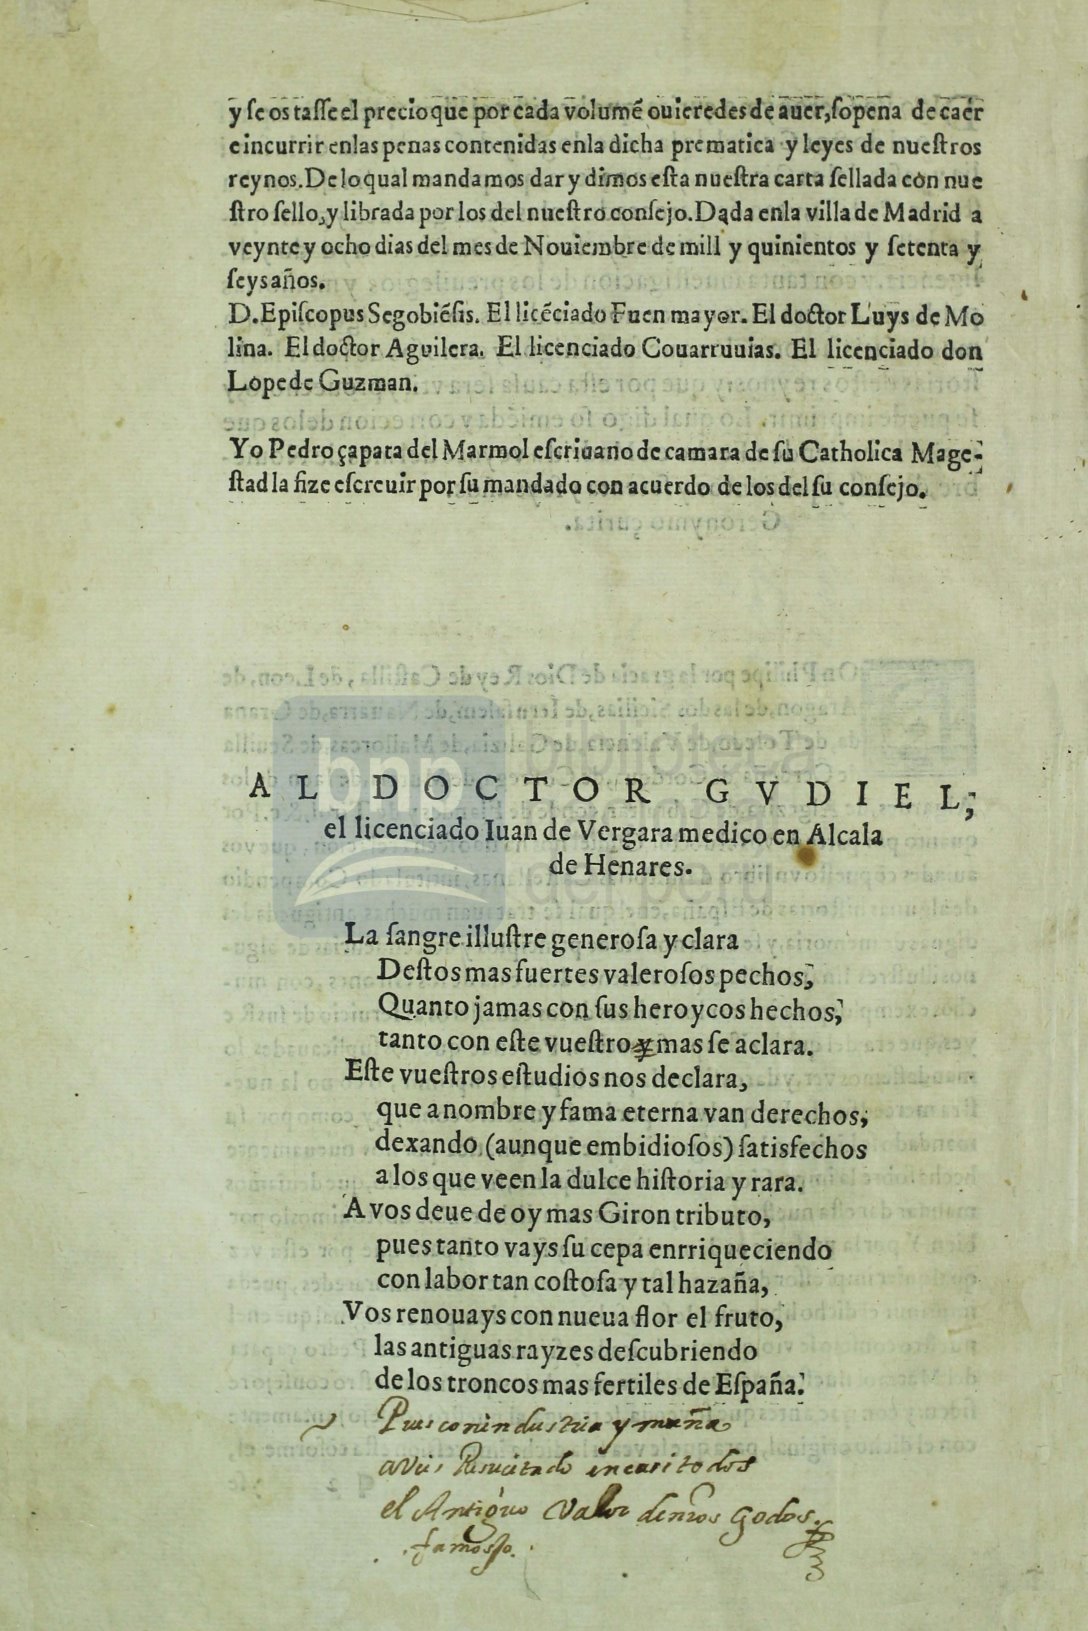 y ſe os taſſe el precio que por cada volumẽ ouieredes de auer, ſopena de caer
e incurrir en las penas contenidas en la dicha prematica y leyes de nueſtros
reynos. De lo qual mandamos dar y dimos eſta nueſtra carta ſellada con nue
ſtro ſello, y librada por los del nueſtro conſejo. Dada en la villa de Madrid a
veynte y ocho dias del mes de Nouiembre de mill y quinientos y ſetenta y
ſeys años.
D. Epiſcopus Segobiẽſis. El licẽciado Fuen mayor. El doctor Luys de Mo
lina. El doctor Aguilera. El licenciado Couarruuias. El licenciado don
Lope de Guzman.
Yo Pedro çapata del Marmol eſcriuano de camara de ſu Catholica Mage-
ſtad la fize eſcreuir por ſu mandado con acuerdo de los del ſu conſejo.
AL DOCTOR GVDIEL,
el licenciado Iuan de Vergara medico en Alcala
de Henares.
La ſangre illuſtre generoſa y clara
Deſtos mas fuertes valeroſos pechos,
Quanto jamas con ſus heroycos hechos,
tanto con eſte vueſtro mas ſe aclara.
Eſte vueſtros eſtudios nos declara,
que a nombre y fama eterna van derechos,
dexando (aunque embidioſos) ſatisfechos
a los que veen la dulce hiſtoria y rara.
A vos deue de oy mas Giron tributo,
pues tanto vays ſu cepa enrriqueciendo
con labor tan coſtoſa y tal hazaña,
Vos renouays con nueua flor el fruto,
las antiguas rayzes deſcubriendo
de los troncos mas fertiles de Eſpaña.
Pues con industria y maña
aveis Resucitado en casi todos
el Antiguo Valor de nros Godos.
famosso.
bnp
biblioteca
nacional
del perú